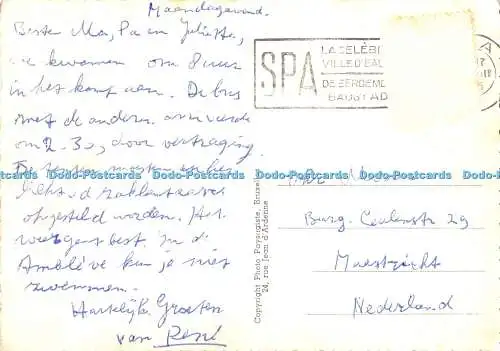 Maandagavond.
Beste Ma, Pa en Juliette,
we kwamen om 8 uur
in het kamp aan. De bus
met de anderen arriveerde
om 2.30, door vertraging.
De tenten moesten bij het
licht v.d. zaklantaarns
opgesteld worden. Het
weer is best. In de
Amblève kun je niet
zwemmen.
Hartelijke Groeten
van René
SPA
LA CELEBRE
VILLE D'EAU
DE BEROEMDE
BADSTAD
Copyright Photo Paysagiste, Bruxelles
24, rue Jean d'Ardenne
Burg. Ceulenstr 29
Maastricht
Nederland
Dodo-Postcards Dodo-Postcards Dodo-Postcards Dodo-Postcards Dodo-Postcards Dodo-Postcards